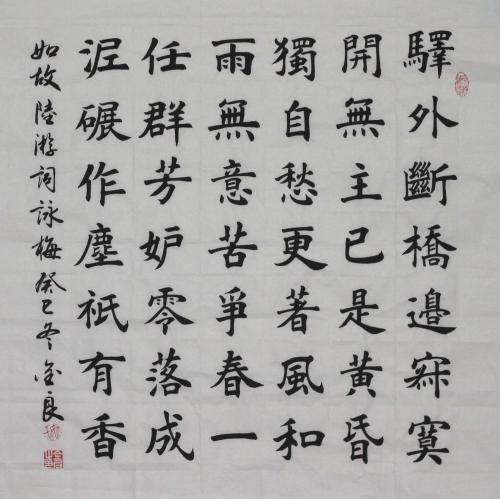 驛外斷橋邊寂寞
開無主已是黃昏
獨自愁更著風和
雨無意苦爭春一
任群芳妒零落成
泥碾作塵祇有香
如故陸游詞詠梅癸巳冬金良